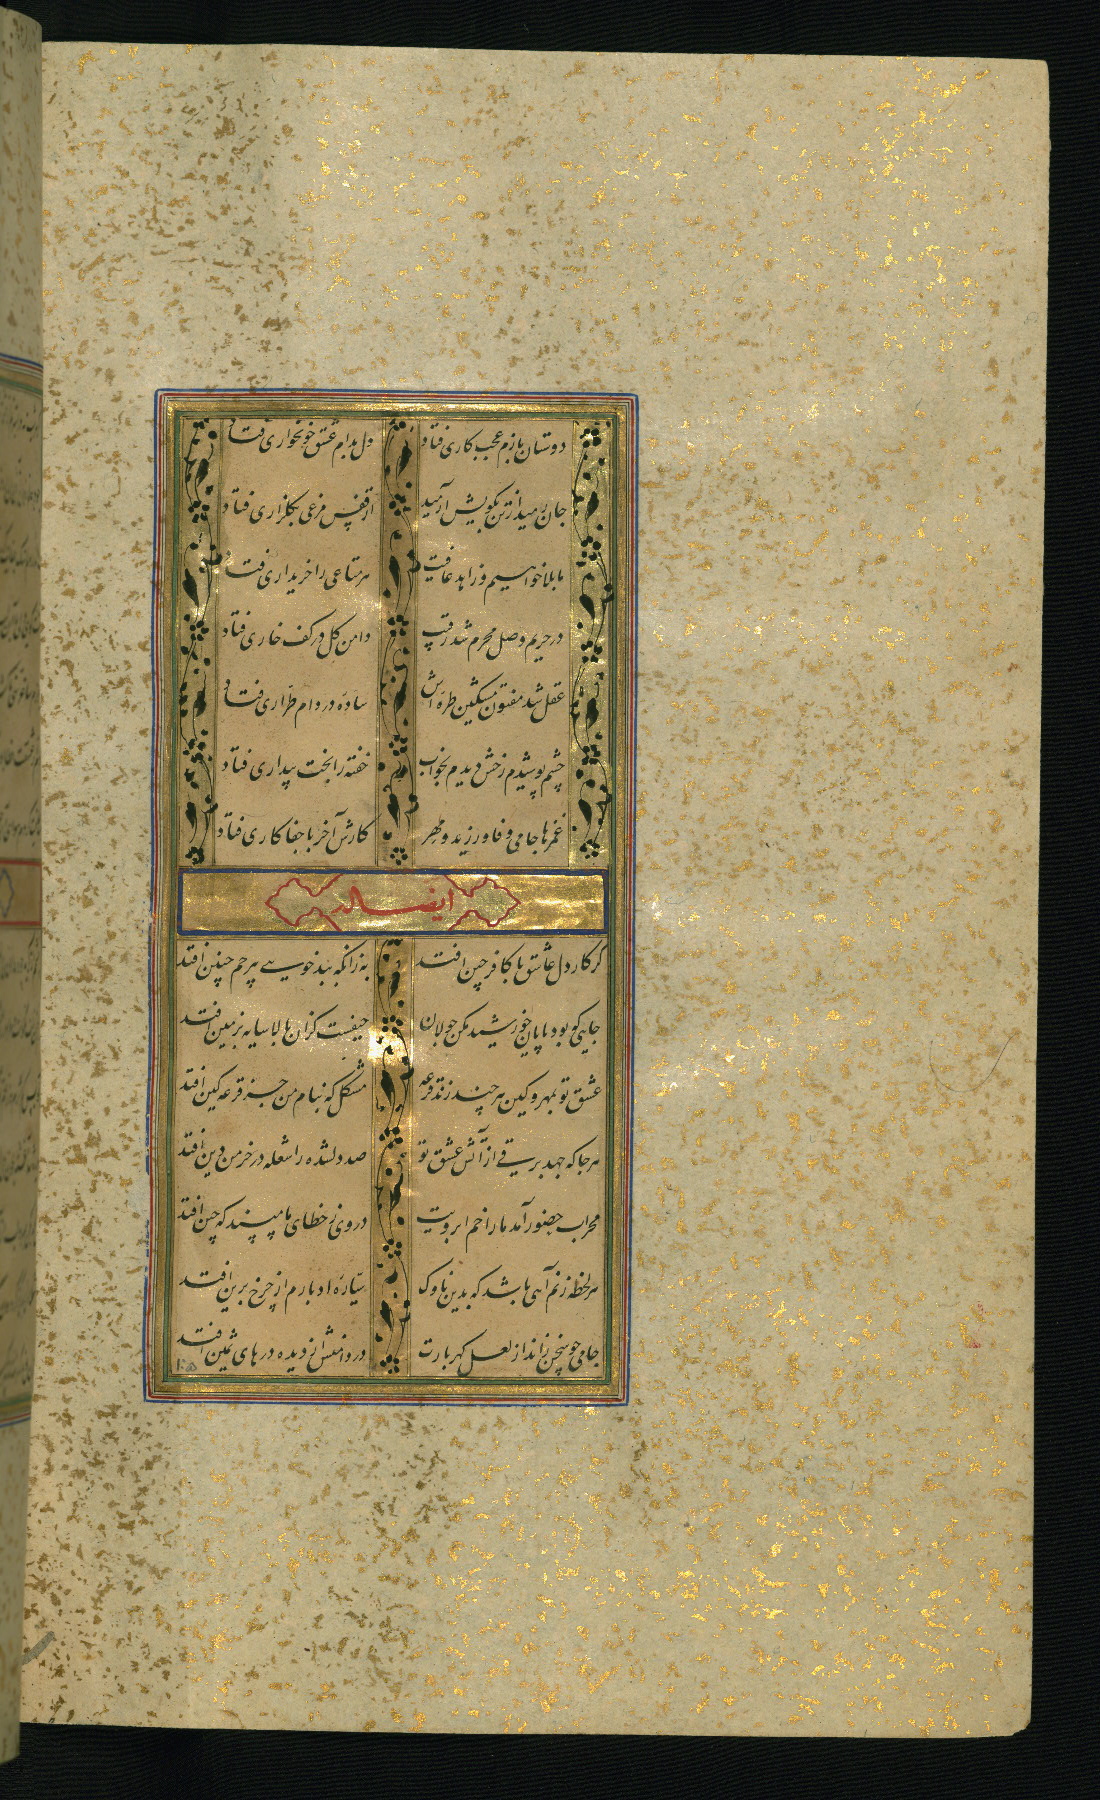 دوستان بازم عجب کاری فتاد دل بدام عشق خونخواری فتاد
جان رمید از تن بکویش آرمید از قفس مرغی بگلزاری فتاد
ما بلا خواهیم و زاهد عافیت هر متاعی را خریداری فتاد
در حریم وصل محرم شد رقیب دامن گل در کف خاری فتاد
عقل شد مفتون مشکین طره اش ساده در دام طراری فتاد
چشم پوشیدم رخش دیدم بخواب خفته را بخت بیداری فتاد
عمرها جامی وفا ورزید و مهر کارش آخر با جفا کاری فتاد
ایضا له
گر کار دل عاشق با کافر چین افتد به زانکه ببدخویی بیرحم چنین افتد
جایی که بود پایان خورشید مکن جولان حیفست کزان بالا سایه بزمین افتد
عشق تو بمهر و کین هر چند زند قرعه مشکل که بنام من جز قرعه کین افتد
هر جا که جهد برقی از آتش عشق تو صد دلشده را شعله در خرمن دین افتد
محراب حضور آمد ما را خم ابرویت در وی ز خطای ما مپسند که چین افتد
هر لحظه زنم آهی باشد که بدین ناوک سیاره ادبارم از چرخ برین افتد
جامی چو سخن راند از لعل گهربارت در دامنش از دیده درهای ثمین افتد